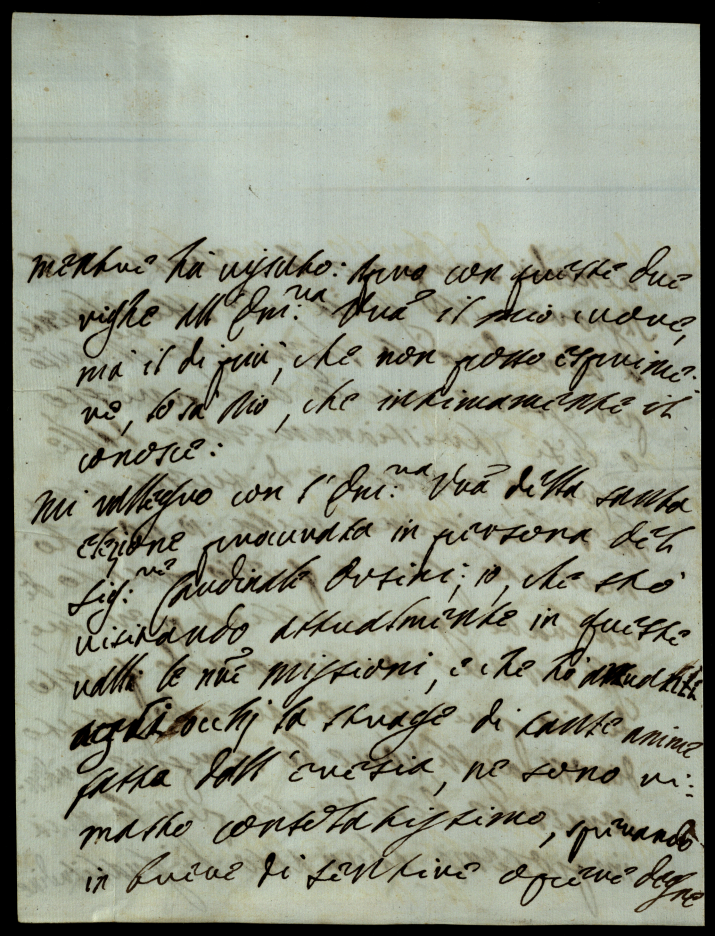 mentre hà vissuto: apro con queste due
righe all'Em:za Vrã il mio cuore,
mà il di più, che non posso esprime:
re, lo sà Dio, che intimamente il
conosce:
Mi rallegro con l'Em:za Vrã della santa
elezione procurata in persona del
Sig:re Cardinale Orsini; io, che stò
visitando attualmente in queste
valli le nrẽ missioni, e che hò
occhj la strage di tante anime
fatta dall'eresia, ne sono ri:
masto consolatissimo, sperando
in breve di sentire opere degne